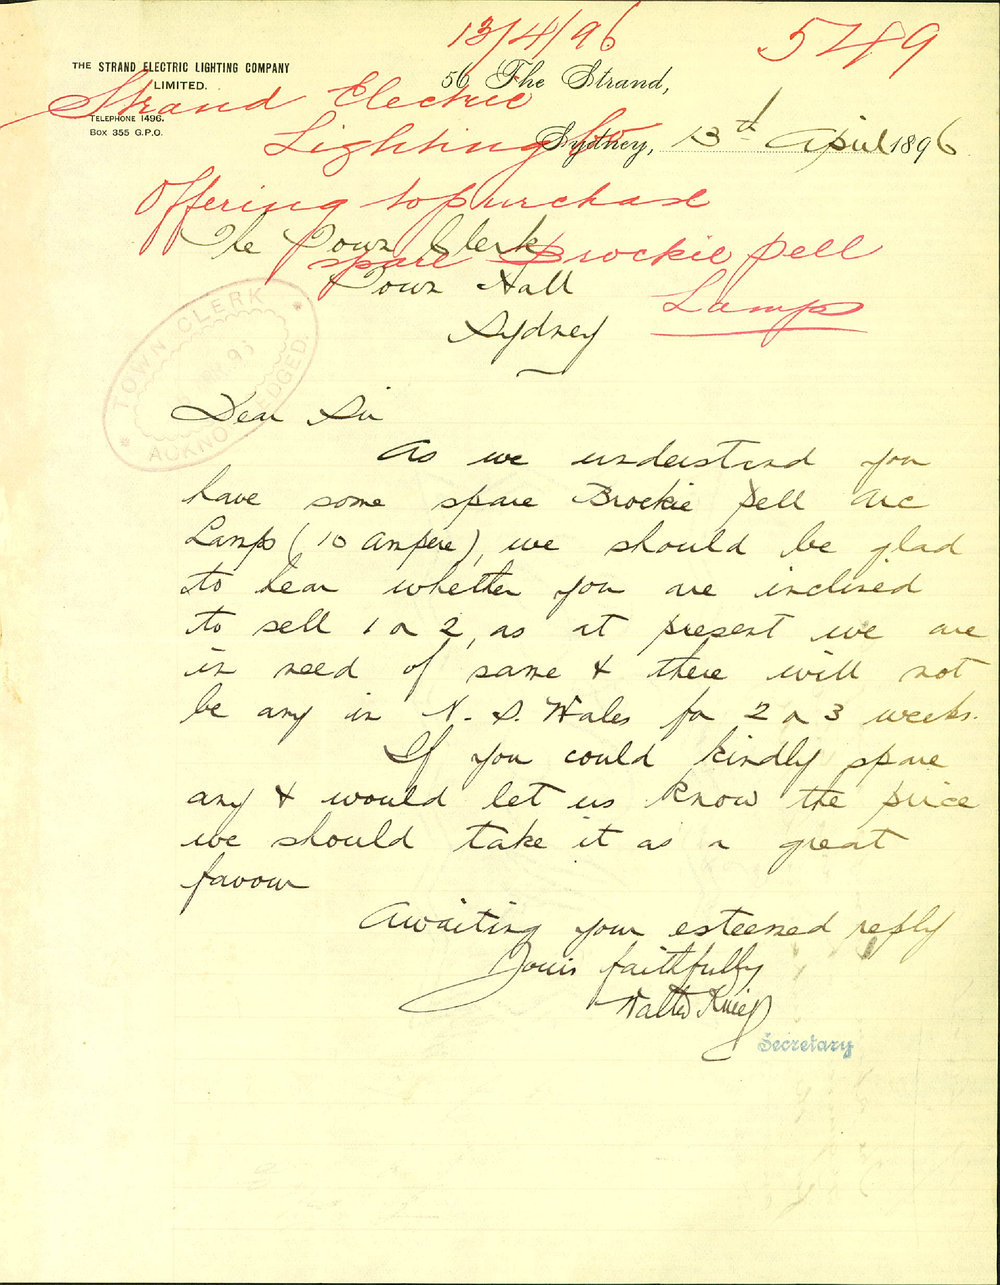 13/4/96
549
THE STRAND ELECTRIC LIGHTING COMPANY
LIMITED.
TELEPHONE 1496.
BOX 355 G.P.O.
56 The Strand,
Sydney, 13th April 1896
Strand Electric
Lighting Co
Offering to purchase
spare Brockie pell
Lamps
The Town Clerk
Town Hall
Sydney
TOWN CLERK
ACKNOWLEDGED.
Dear Sir
As we understand you
have some spare Brockie pell arc
Lamps (10 ampere), we should be glad
to hear whether you are inclined
to sell 1 or 2, as at present we are
in need of same & there will not
be any in N. S. Wales for 2 or 3 weeks.
If you could kindly spare
any & would let us know the price
we should take it as a great
favour
Awaiting your esteemed reply
Yours faithfully
Walter
Secretary